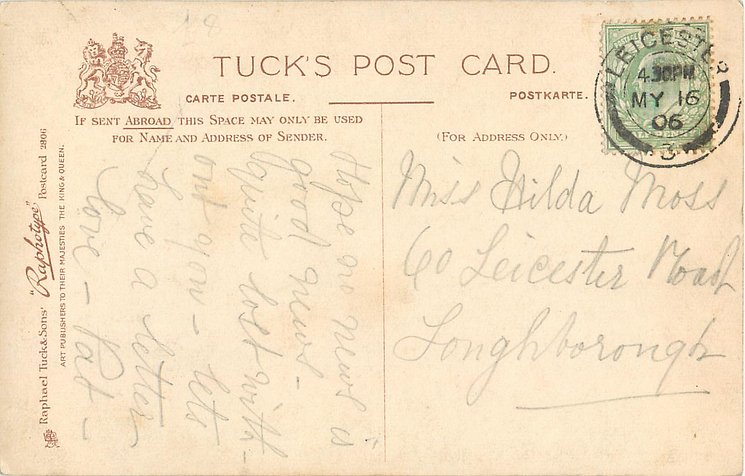 TUCK'S POST CARD.
CARTE POSTALE.
POSTKARTE.
IF SENT ABROAD THIS SPACE MAY ONLY BE USED
FOR NAME AND ADDRESS OF SENDER.
(FOR ADDRESS ONLY.)
LEICESTER
4.30PM
MY 16
06
3
Raphael Tuck & Sons' "Raphotype" Postcard 2806
ART PUBLISHERS TO THEIR MAJESTIES THE KING & QUEEN.
Hope no news is
good news -
quite lost with-
out you - lets
have a letter -
love - Pat -
Miss Hilda Moss
60 Leicester Road
Loughborough